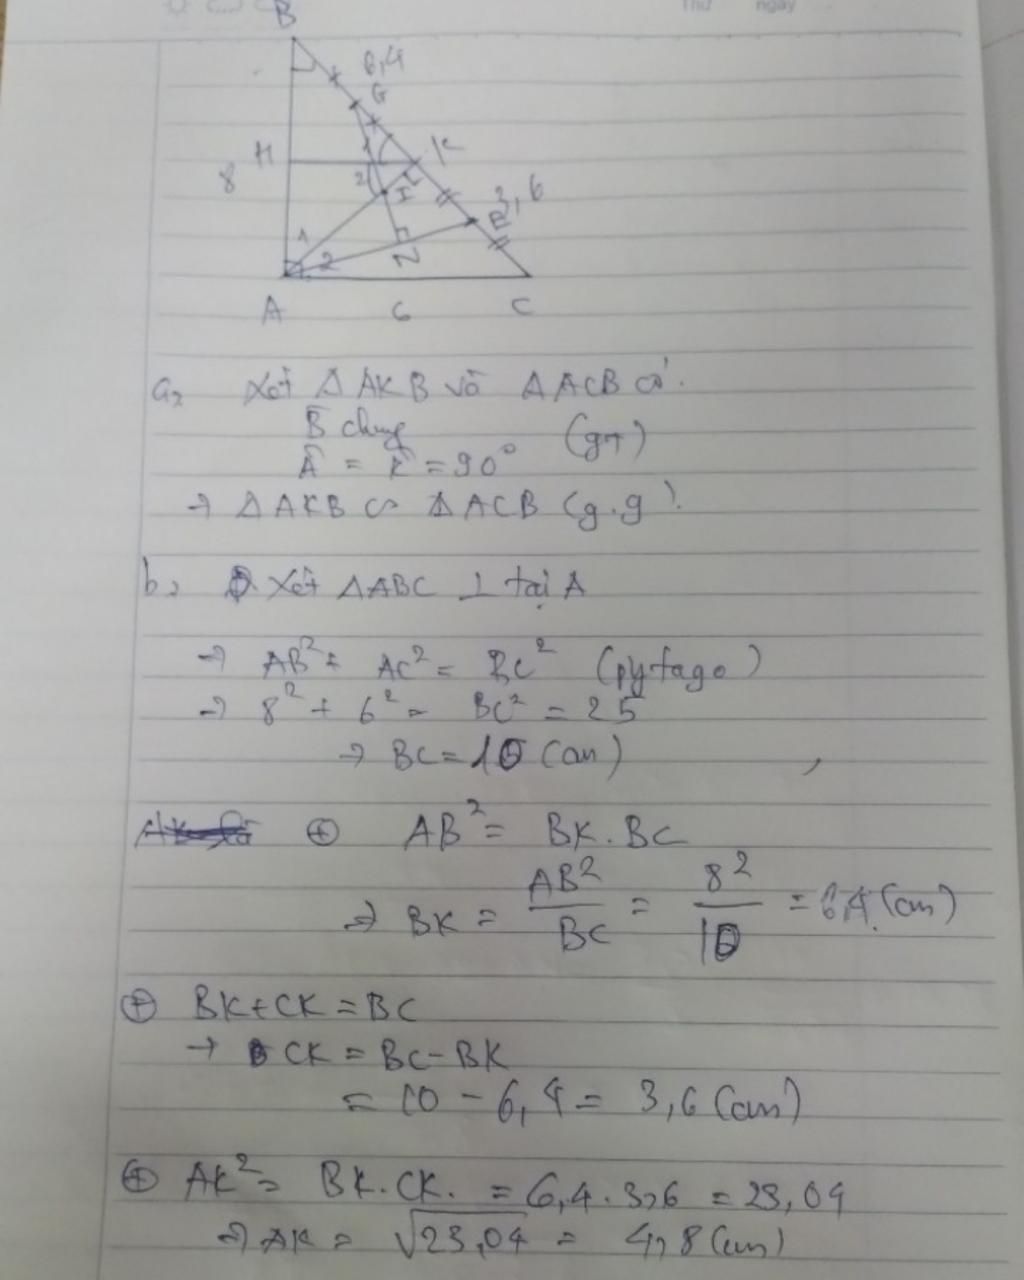 Thứ ngày
B
6,4
G
H
K
8
1
2
I
3,6
E
1
2
N
A
6
C
a, Xét Δ AKB và Δ ACB có
B̂ chung
Â = K̂ = 90° (gt)
→ Δ AKB ∽ Δ ACB (g.g)
b, Xét ΔABC ⊥ tại A
→ AB² + AC² = BC² (pytago)
→ 8² + 6² = BC² = 25
→ BC = 10 (cm)
⊕ AB² = BK.BC
→ BK = AB²/BC = 8²/10 = 6,4 (cm)
⊕ BK+CK = BC
→ CK = BC - BK
= 10 - 6,4 = 3,6 (cm)
⊕ AK² = BK.CK. = 6,4.3,6 = 23,04
→ AK = √23,04 = 4,8 (cm)